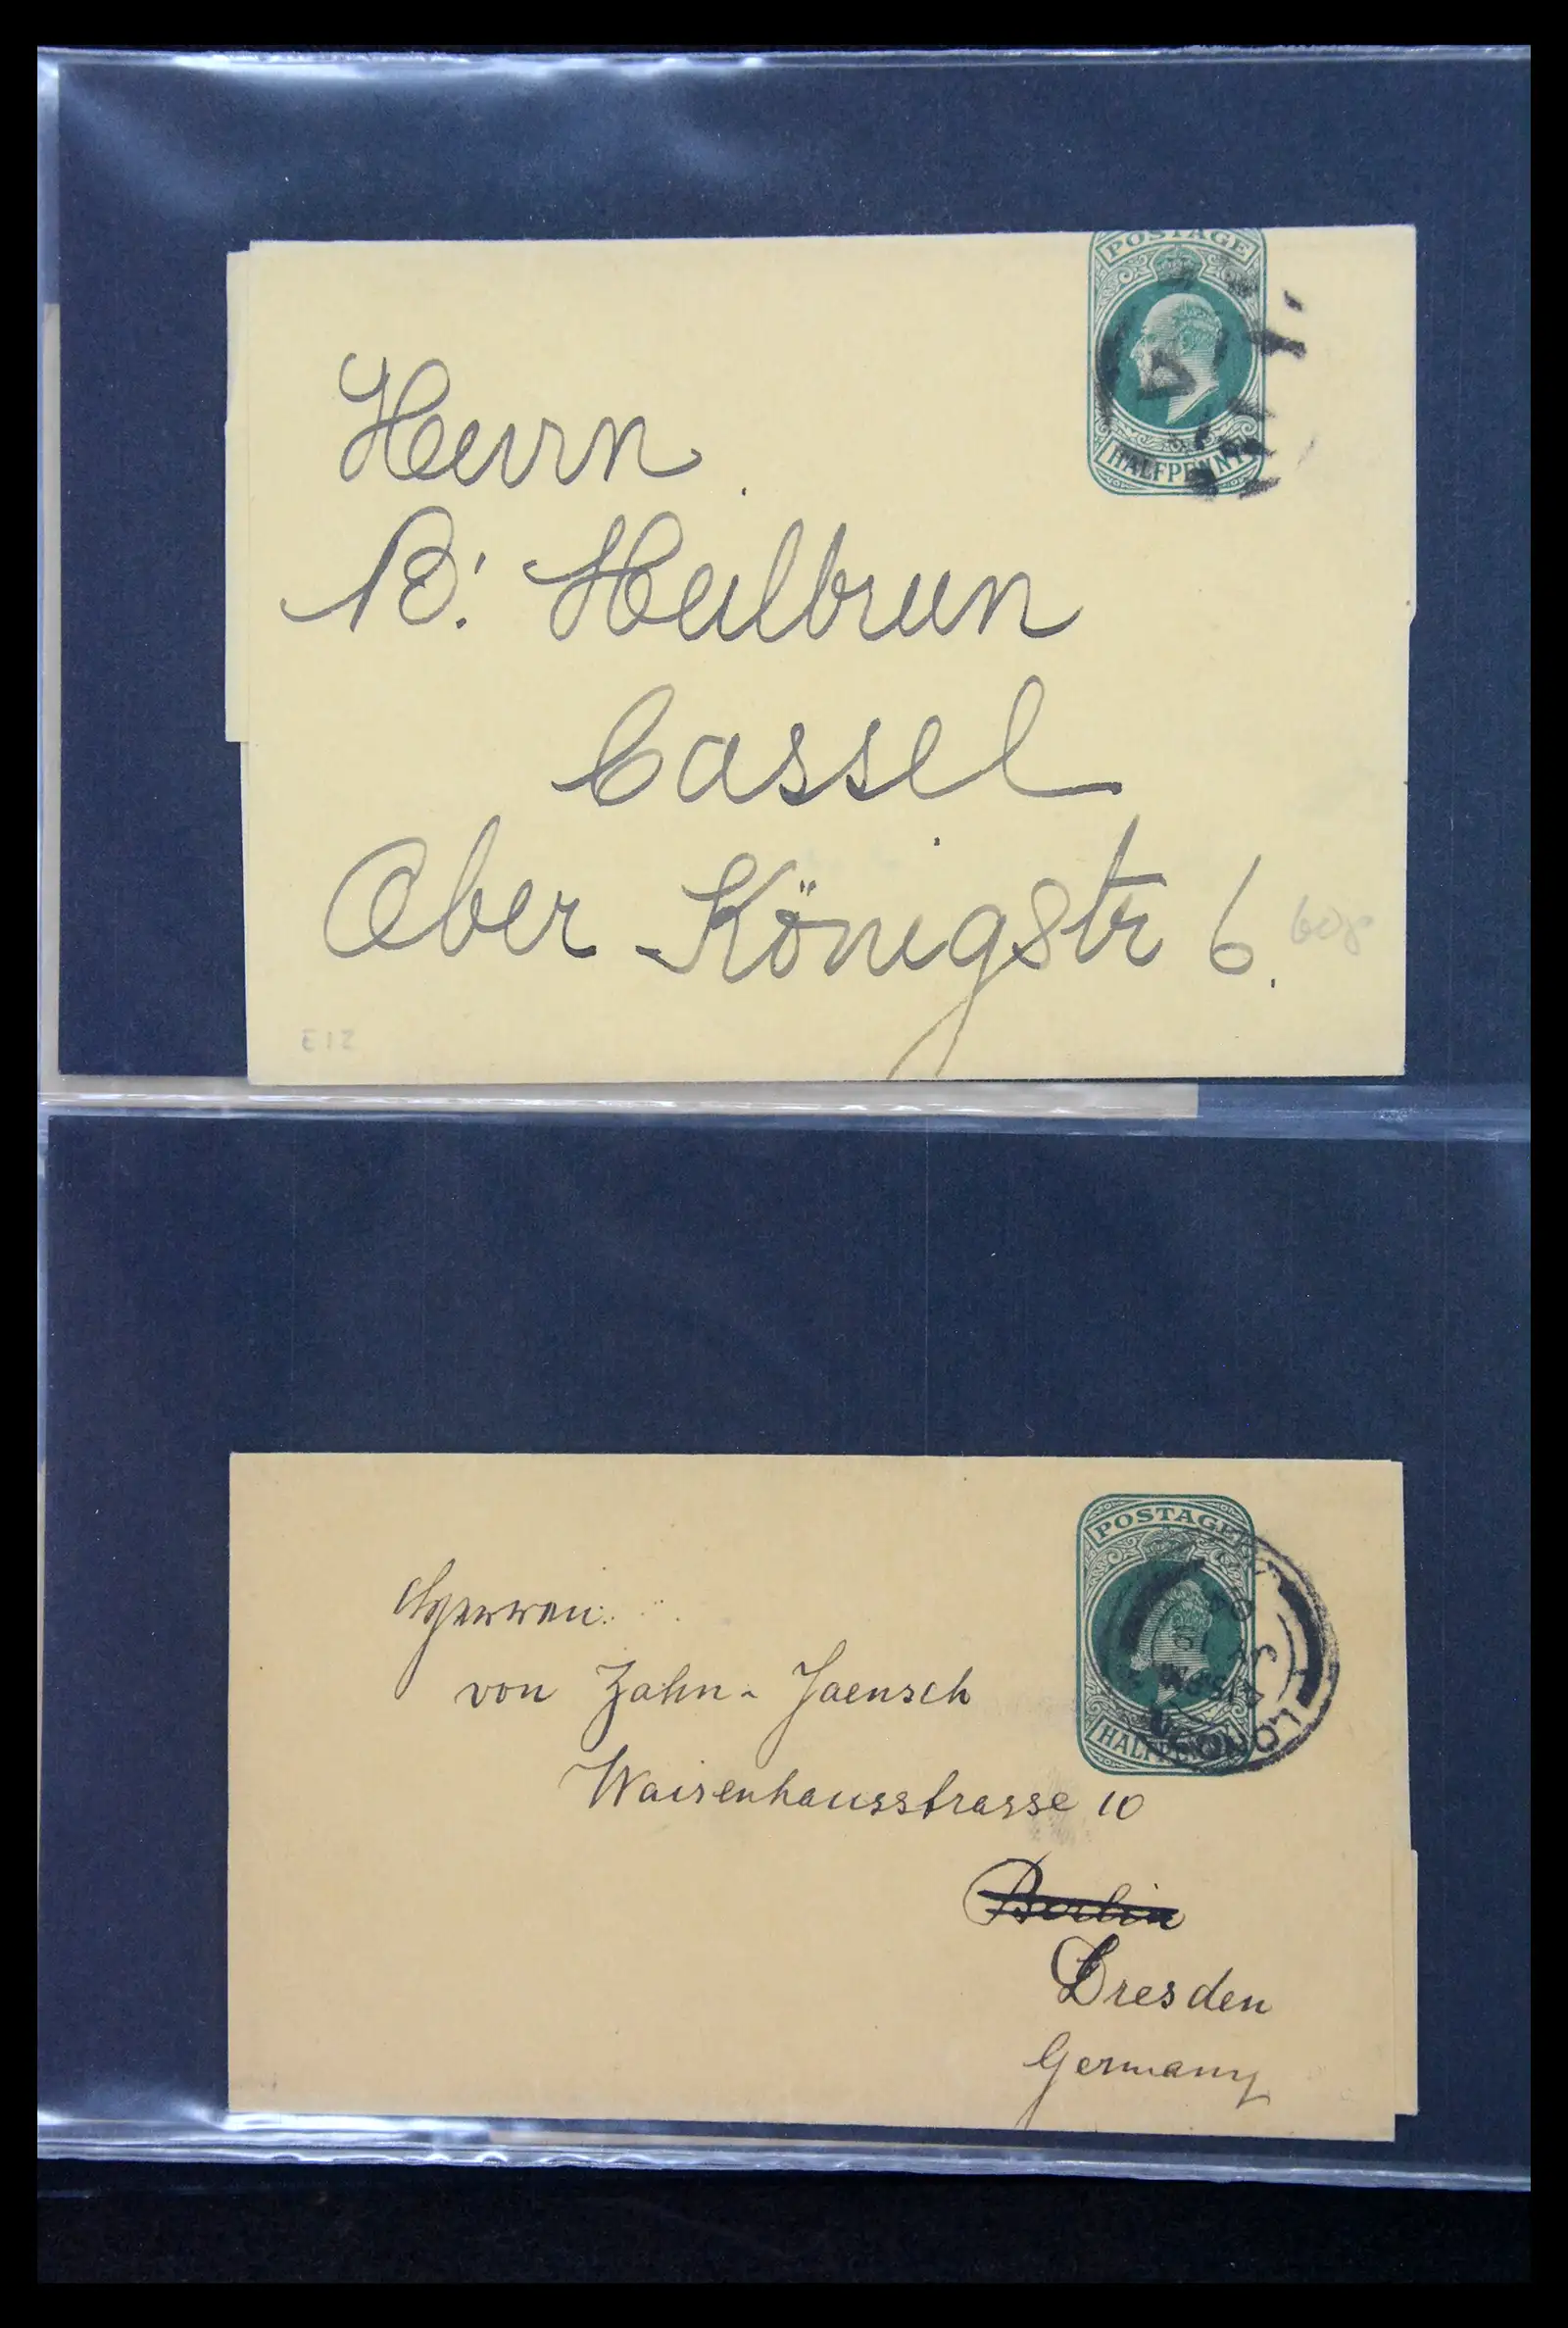 POSTAGE
HALFPENNY
Herrn
B. Heilbrun
Cassel
Ober Königstr 6.
E12
POSTAGE
HALFPENNY
LONDON
Herren
von Zahn-Jaensch
Waisenhausstrasse 10
Berlin
Dresden
Germany